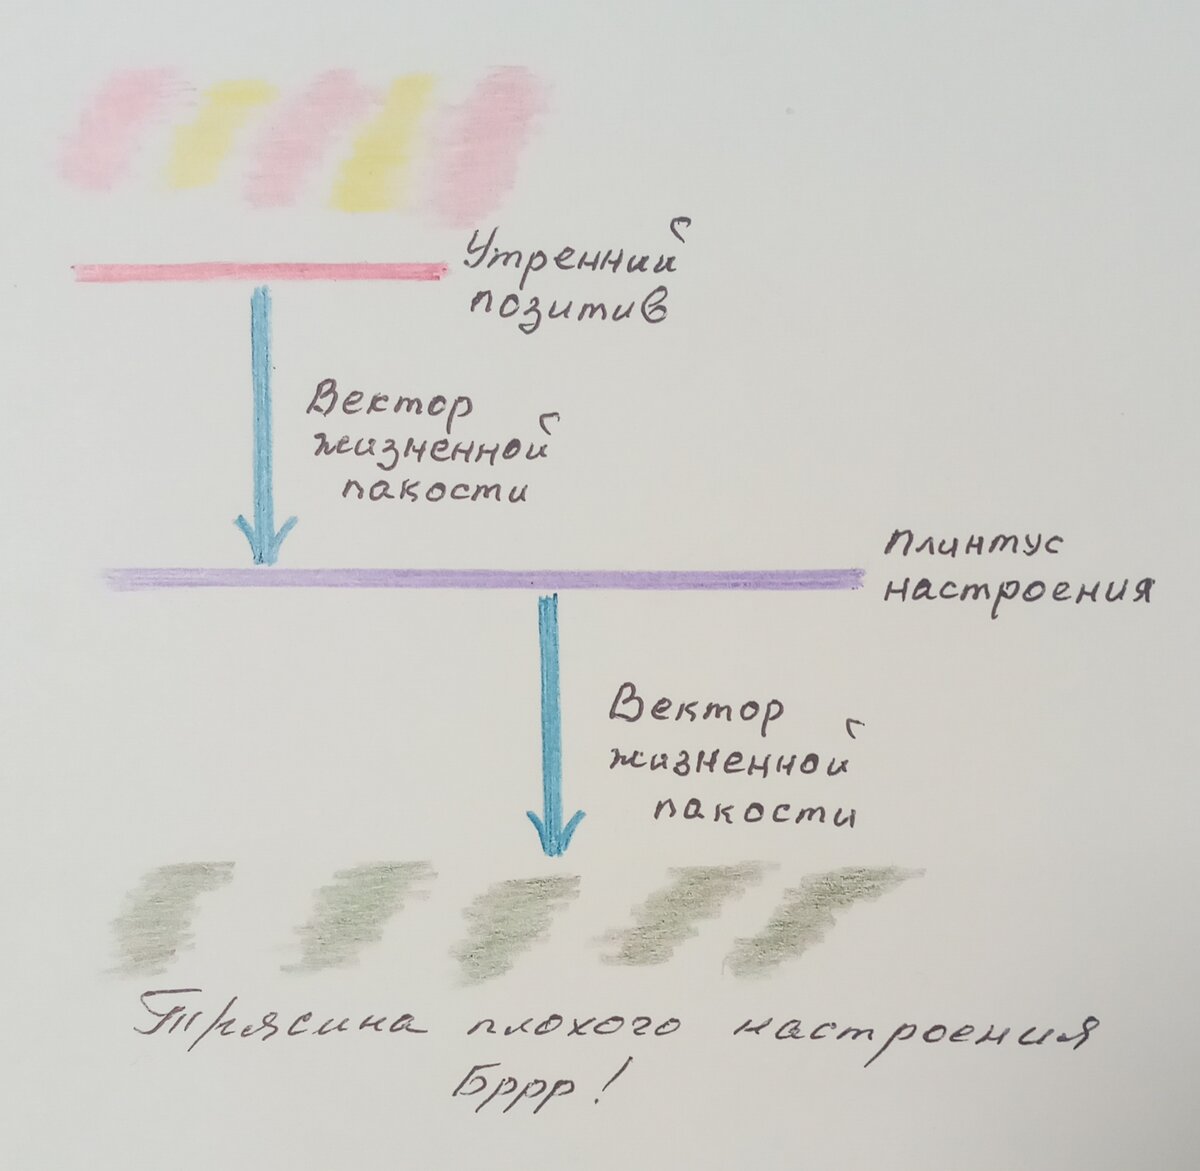 Утренний
позитив
Вектор
жизненной
пакости
плинтус
настроения
Вектор
жизненной
пакости
Трясина плохого настроения
Бррр!